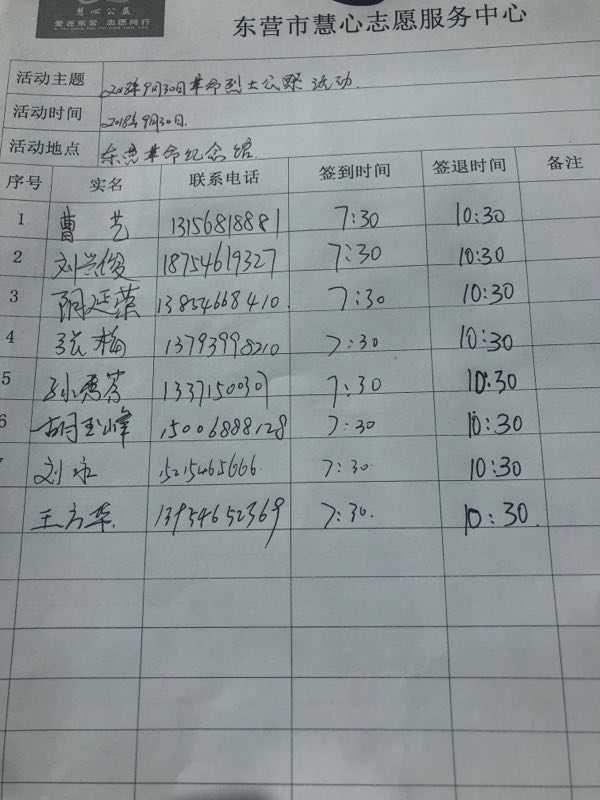 慧心公益
爱在东营 志愿同行
东营市慧心志愿服务中心
活动主题 2018年9月30日革命烈士公祭活动.
活动时间 2018年9月30日.
活动地点 东营革命纪念馆.
序号 实名 联系电话 签到时间 签退时间 备注
1 曹艺 13156818881 7:30 10:30
2 刘兰俊 18754619327 7:30 10:30
3 延荣 13854668410. 7:30 10:30
4 张梅 13793998210 7:30 10:30
5 孙秀芳 1337150037 7:30 10:30
6 胡玉峰 15006888128 7:30 10:30
刘冰 15215465666. 7:30. 10:30
王方华. 13954652369 7:30. 10:30.